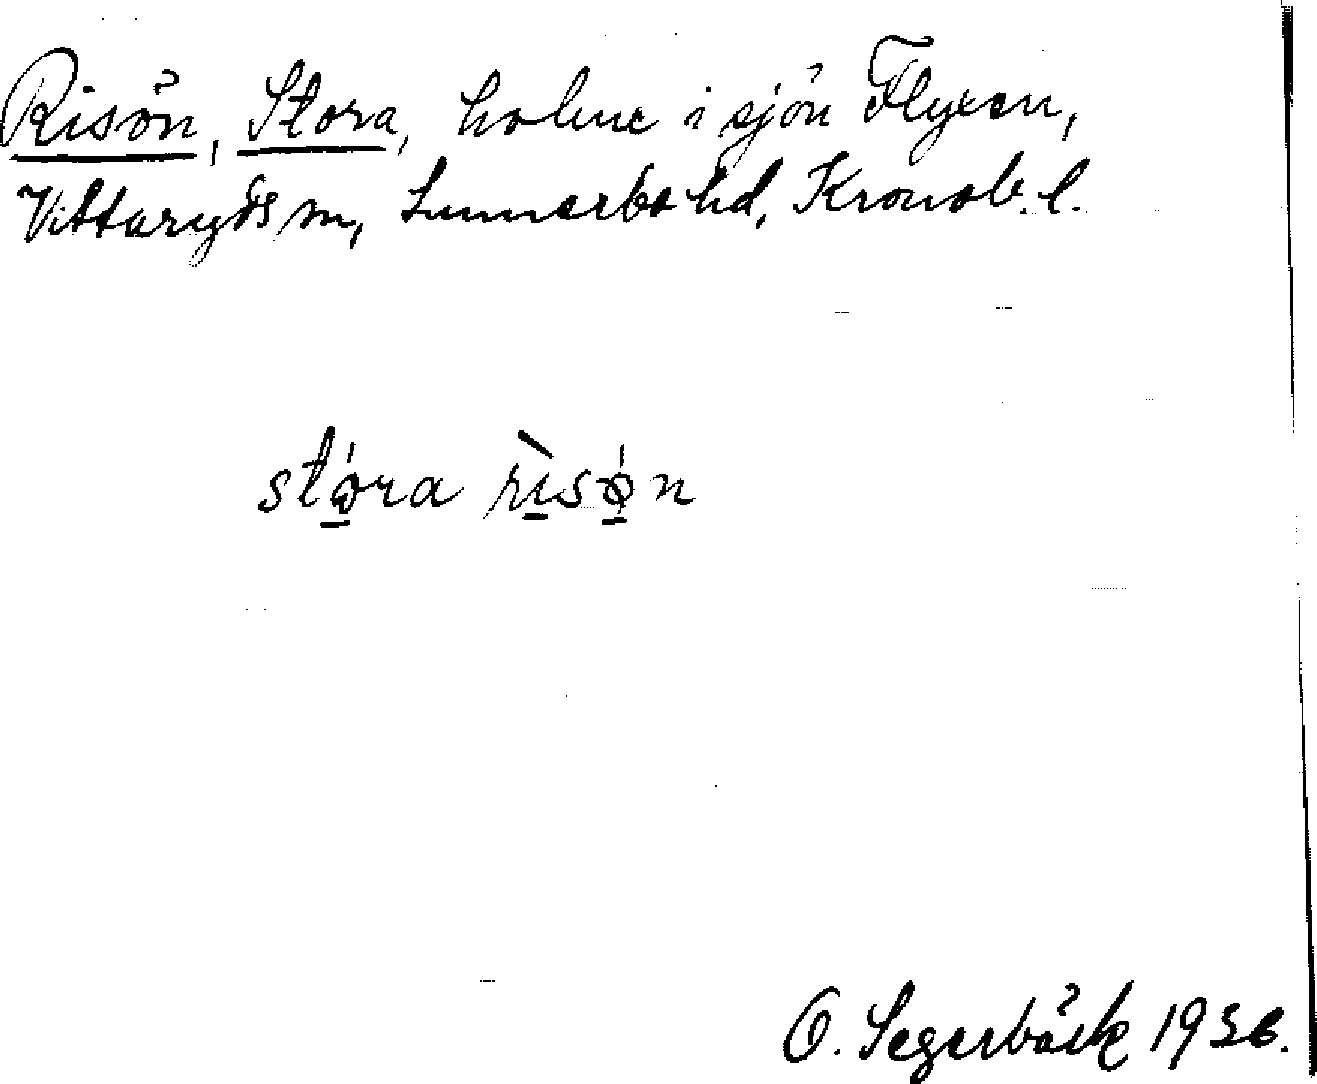 Risön, Stora, holme i sjön Flyxen,
Vittaryds sn, Sunnerbo hd, Kronob. l.
stó̱ra rì̱sǿ̱n
O. Segerbäck 1936.